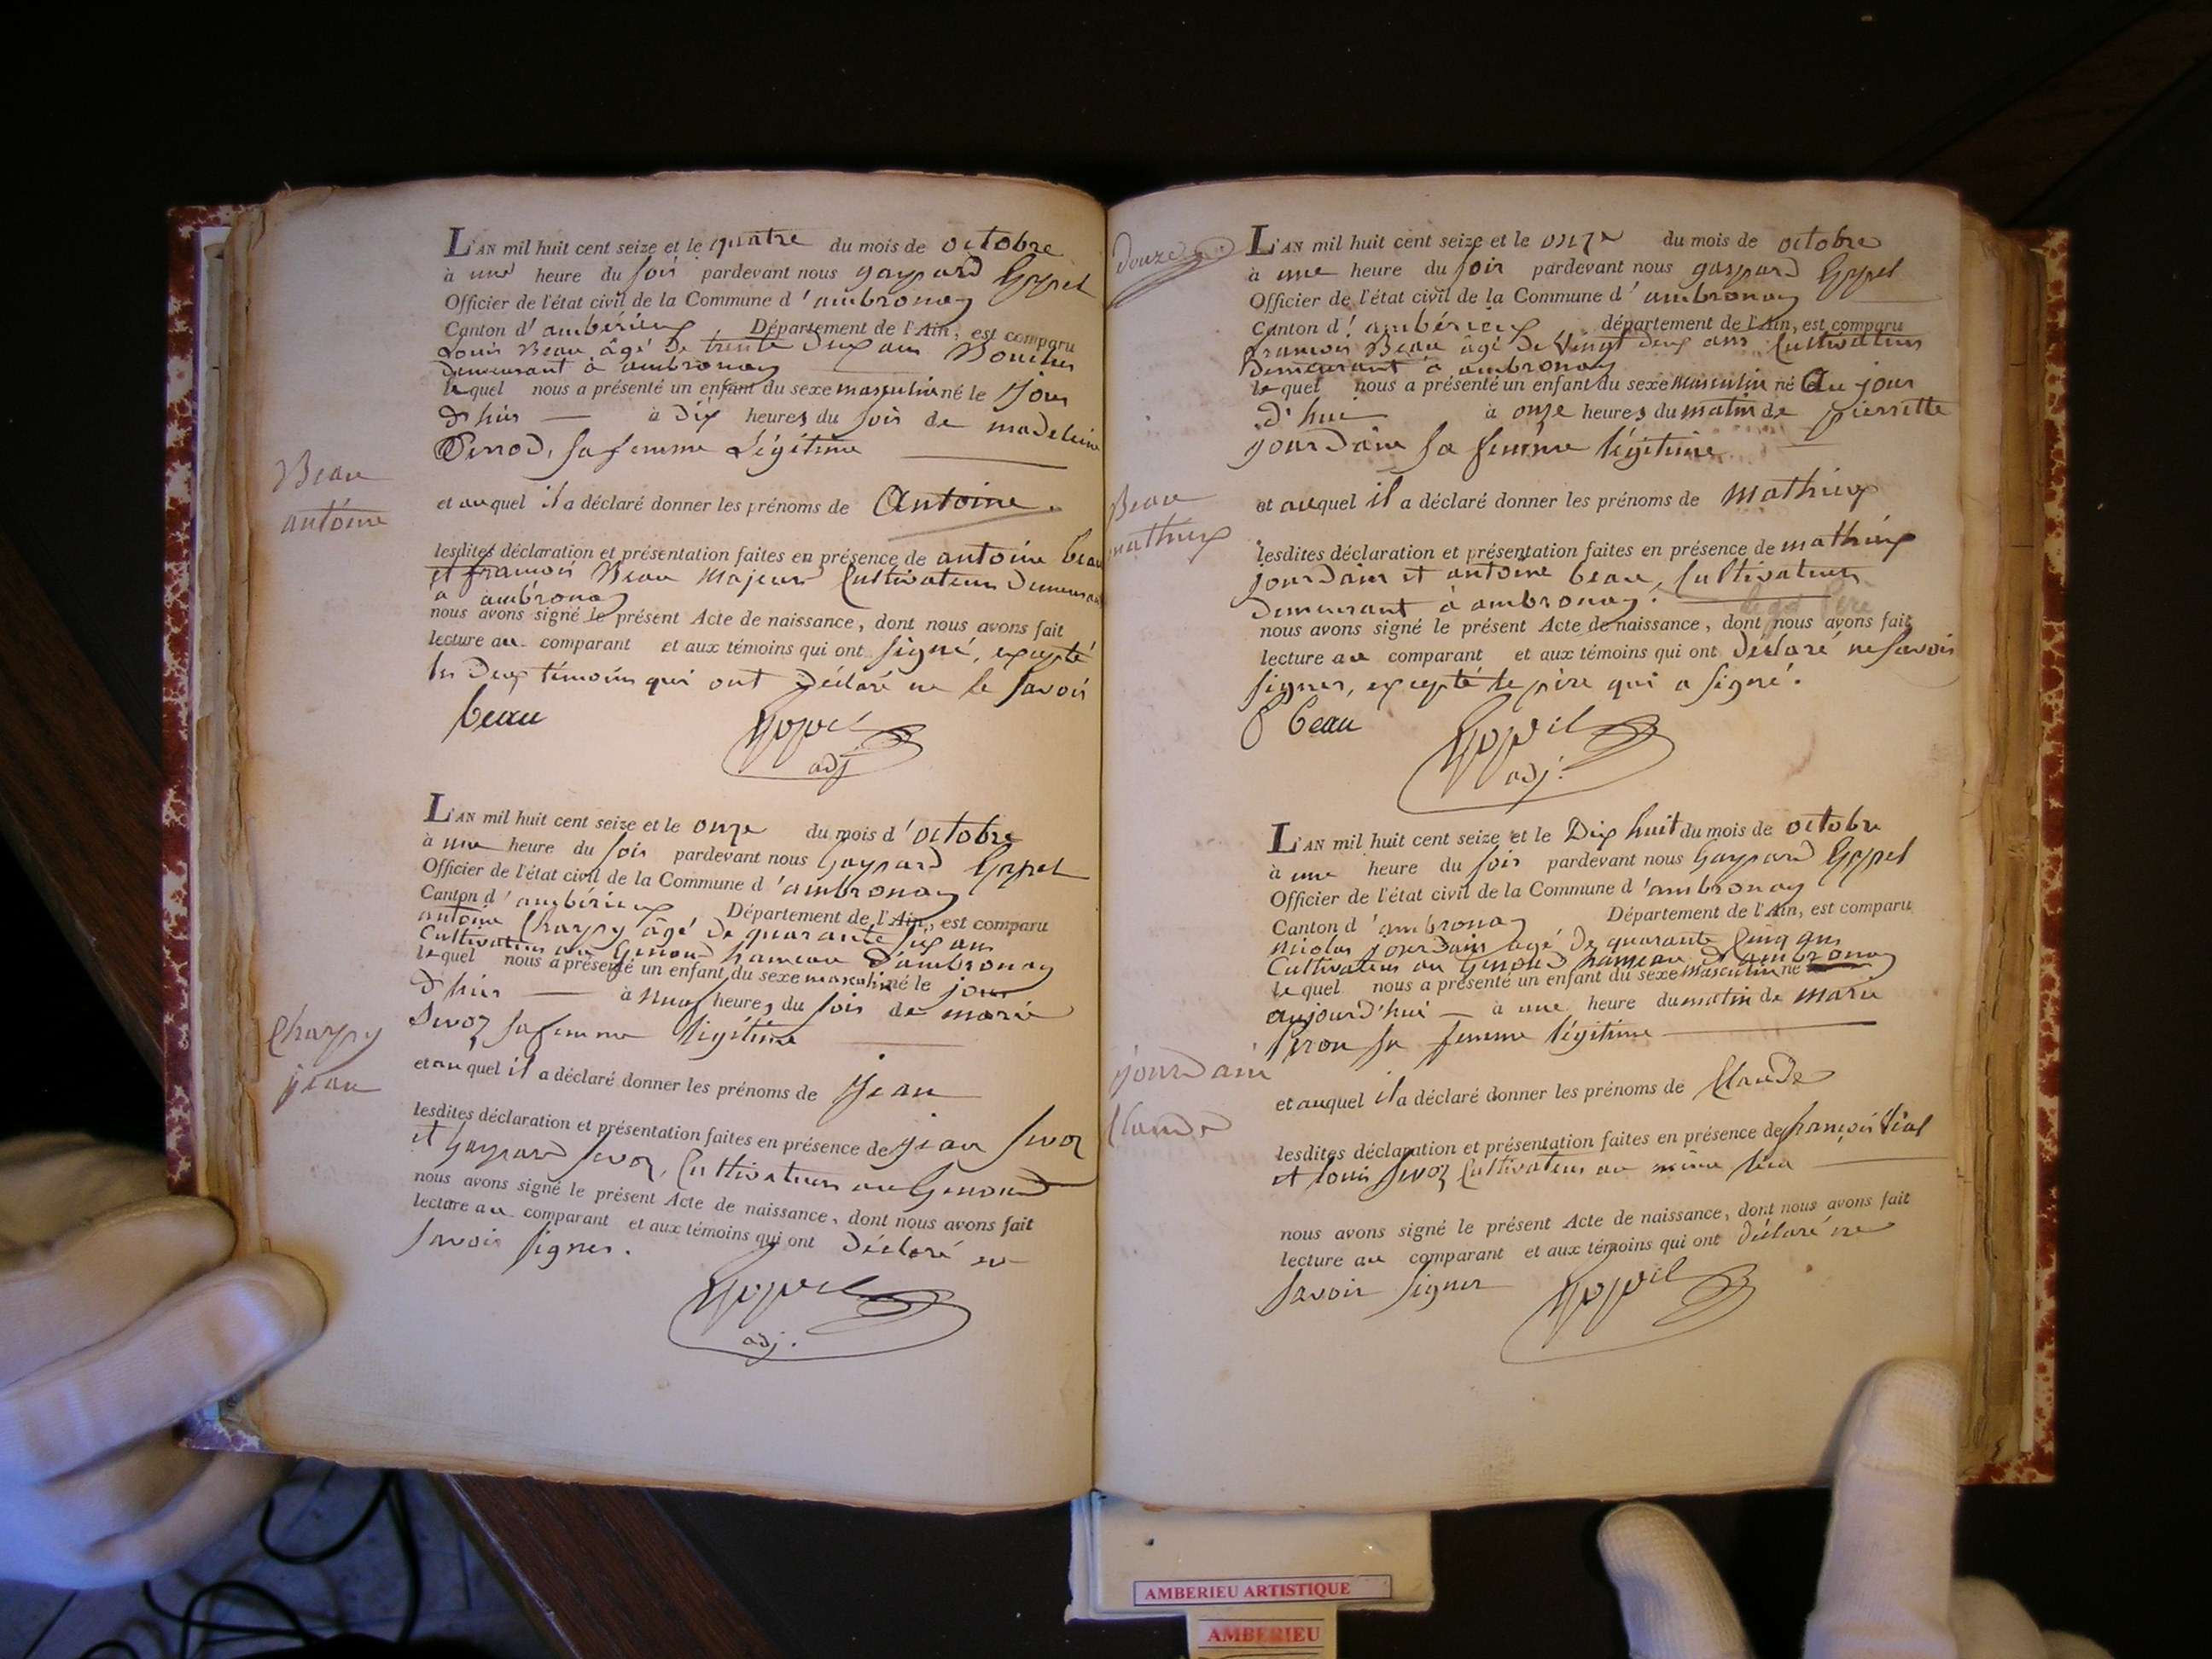 L'AN mil huit cent seize et le quatre du mois de octobre
à une heure du soir pardevant nous gaspard
Officier de l'état civil de la Commune d'ambronay
Canton d'ambérieux Département de l'Ain, est comparu
Louis Beau âgé de trente deux ans Boucher
demeurant à ambronay
lequel nous a présenté un enfant du sexe masculin né le jour
d'hier à dix heures du soir de madeleine
Perrod, sa femme Légitime
Beau
antoine
et auquel il a déclaré donner les prénoms de Antoine
lesdites déclaration et présentation faites en présence de antoine beau
et francois Beau Majeurs Cultivateurs demeurant
à ambronay
nous avons signé le présent Acte de naissance, dont nous avons fait
lecture au comparant et aux témoins qui ont signé, excepté
les deux témoins qui ont déclaré ne le savoir
beau
adj
L'AN mil huit cent seize et le onze du mois d'octobre
à une heure du soir pardevant nous Gaspard
Officier de l'état civil de la Commune d'ambronay
Canton d'ambérieux Département de l'Ain, est comparu
antoine Charpy âgé de quarante six ans
Cultivateur au Genoud hameau d'ambronay
lequel nous a présenté un enfant du sexe masculin né le jour
d'hier à neuf heures du soir de marie
Sevoz sa femme légitime
Charpy
jean
et auquel il a déclaré donner les prénoms de jean
lesdites déclaration et présentation faites en présence de jean Sevoz
et Gaspard Sevoz, Cultivateurs au Genoud
nous avons signé le présent Acte de naissance, dont nous avons fait
lecture au comparant et aux témoins qui ont déclaré ne
savoir signer.
adj.
douze
L'AN mil huit cent seize et le onze du mois de octobre
à une heure du soir pardevant nous gaspard
Officier de l'état civil de la Commune d'ambronay
Canton d'ambérieux département de l'Ain, est comparu
francois Beau âgé de Vingt deux ans Cultivateur
Demeurant à ambronay
lequel nous a présenté un enfant du sexe masculin né Au jour
d'hui à onze heures du matin de pierrette
jourdain sa femme légitime
Beau
mathieux
et auquel il a déclaré donner les prénoms de Mathieux
lesdites déclaration et présentation faites en présence de mathieux
jourdain et antoine beau, Cultivateurs
Demeurant à ambronay.
nous avons signé le présent Acte de naissance, dont nous avons fait
lecture au comparant et aux témoins qui ont déclaré ne savoir
signer, excepté le père qui a signé.
beau
adj.
L'AN mil huit cent seize et le Dix huit du mois de octobre
à une heure du soir pardevant nous Gaspard
Officier de l'état civil de la Commune d'ambronay
Canton d'ambronay Département de l'Ain, est comparu
nicolas jourdain âgé de quarante cinq ans
Cultivateur au Genoud hameau d'ambronay
lequel nous a présenté un enfant du sexe masculin né
aujourd'hui à une heure du matin de marie
sa femme légitime
jourdain
Claude
et auquel il a déclaré donner les prénoms de Claude
lesdites déclaration et présentation faites en présence de françois Vial
et louis Sevoz Cultivateurs au même lieu
nous avons signé le présent Acte de naissance, dont nous avons fait
lecture au comparant et aux témoins qui ont déclaré ne
savoir signer
AMBERIEU ARTISTIQUE
AMBERIEU